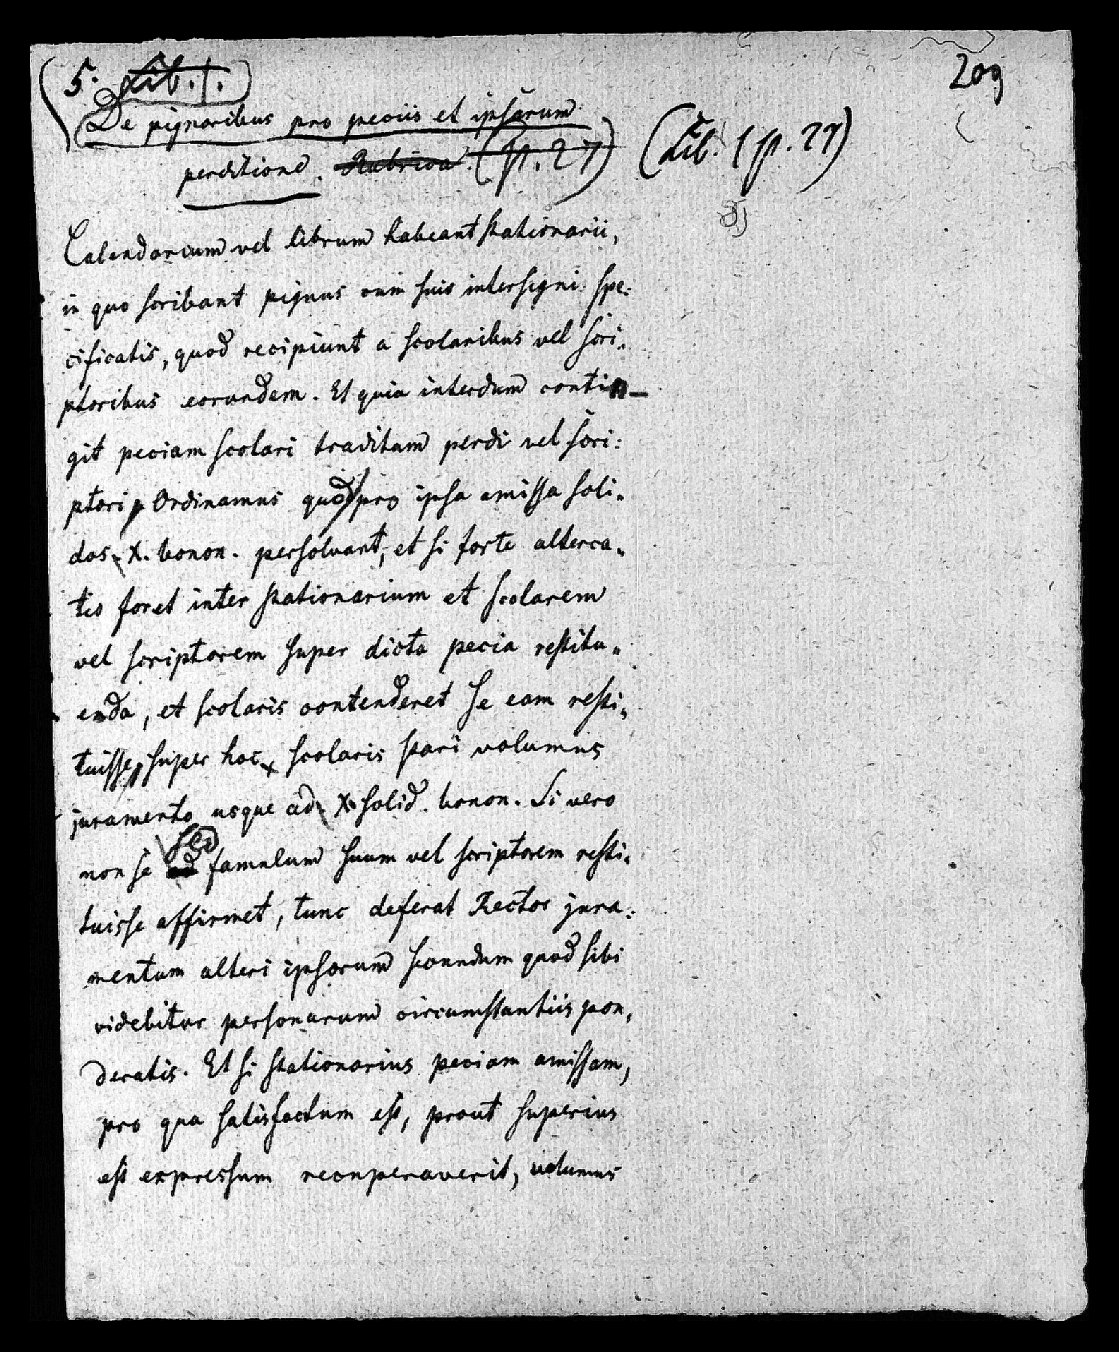 209
(5. Lib. 1.)
De pignoribus pro peciis et ipsarum
perditione. Rubrica. (p. 27) (Lib. 1 p. 27)
Calendarium vel librum habeant stationarii,
in quo scribant pignus cum suis intersigni. spe:
cificatis, quod recipiunt a scolaribus vel scri-
ptoribus eorundem. Et quia interdum contin-
git peciam scolari traditam perdi vel scri:
ptori, Ordinamus quod pro ipsa amissa soli-
dos X. bonon. persolvant, et si forte alterca-
tio foret inter stationarium et scolarem
vel scriptorem super dicta pecia restitu-
enda, et scolaris contenderet se eam resti-
tuisse, super hoc scolaris stari volumus
juramento usque ad X. solid. bonon. Si vero
non se sed famulum suum vel scriptorem resti-
tuisse affirmet, tunc deferat Rector jura:
mentum alteri ipsorum secundum quod sibi
videbitur personarum circumstantiis pon-
deratis. Et si stationarius peciam amissam,
pro qua satisfactum est, prout superius
est expressum recuperaverit, volumus